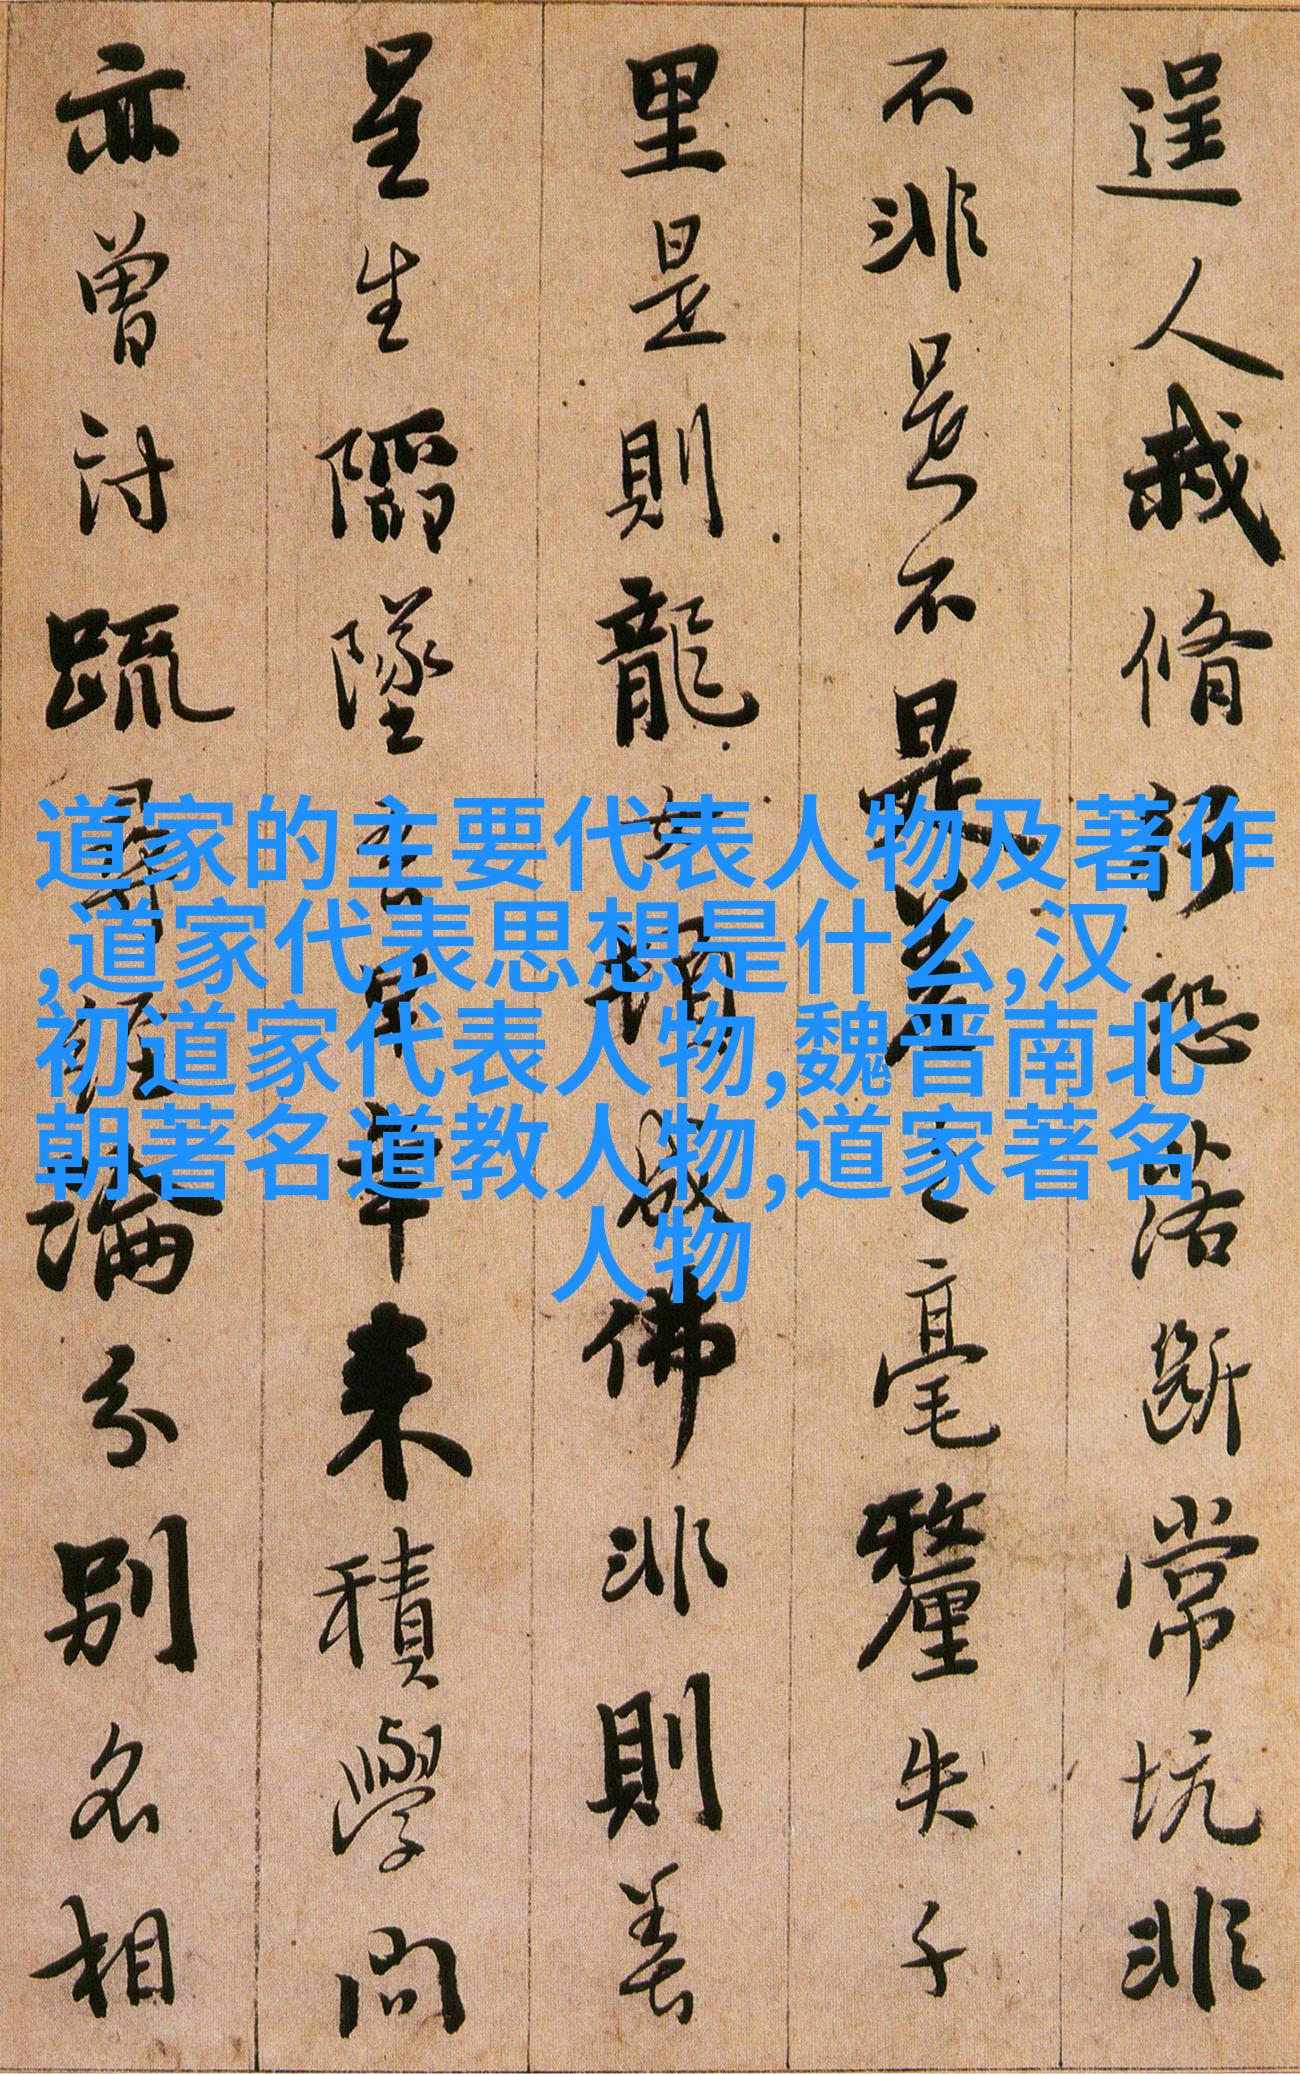 逞人我脩行恐落斷常坑非
不非是不是差之毫釐失千
里是則龍女頓成佛非則善
星生陷墜吾早年來積學問
亦曾討疏尋經論分別名相
道家的主要代表人物及著作
,道家代表思想是什么,汉
初道家代表人物,魏晋南北
朝著名道教人物,道家著名
人物